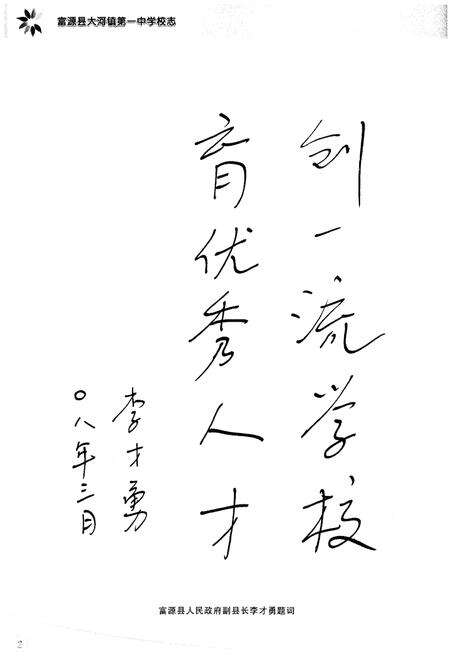 富源县大河镇第一中学校志
创一流学校
育优秀人才
李才勇
〇八年三月
富源县人民政府副县长李才勇题词
2